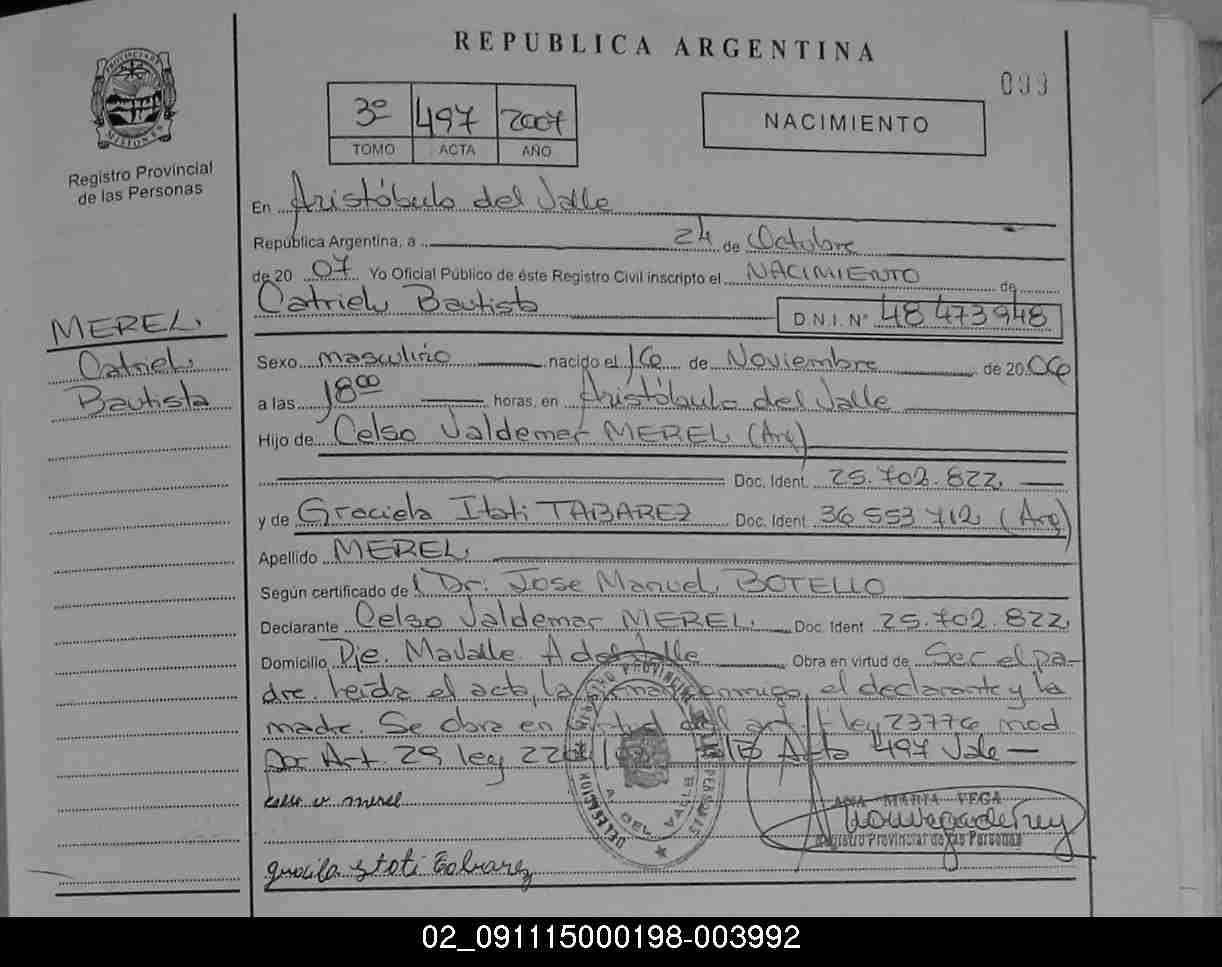 REPUBLICA ARGENTINA
099
PROVINCIA DE MISIONES
Registro Provincial
de las Personas
3º 497 2007
TOMO ACTA AÑO
NACIMIENTO
En Aristóbulo del Valle
República Argentina, a 24 de Octubre
de 20 07 Yo Oficial Público de éste Registro Civil inscripto el NACIMIENTO de
Catriel Bautista D.N.I. Nº 48 473 948
MEREL
Catriel
Bautista
Sexo masculino nacido el 16 de Noviembre de 20 06
a las 18 00 horas, en Aristóbulo del Valle
Hijo de Celso Valdemar MEREL (Arg)
Doc. Ident. 25.702.822
y de Graciela Itati TABAREZ Doc. Ident. 36 553 712 (Arg)
Apellido MEREL
Según certificado de Dr. Jose Manuel BOTELLO
Declarante Celso Valdemar MEREL Doc. Ident 25.702.822
Domicilio Pje. Mavalle. A del Valle Obra en virtud de Ser el pa-
dre. Leída el acta, la firman conmigo, el declarante y la
madre. Se obra en virtud del art. 1 ley 23776 mod
por Art. 29 ley Acta 497 Vale —
celso v merel
ANA MARIA VEGA
Registro Provincial de las Personas
graciela Itati Tabarez
REGISTRO PROVINCIAL DE LAS PERSONAS
DELEGACION
A. DEL VALLE
02_091115000198-003992